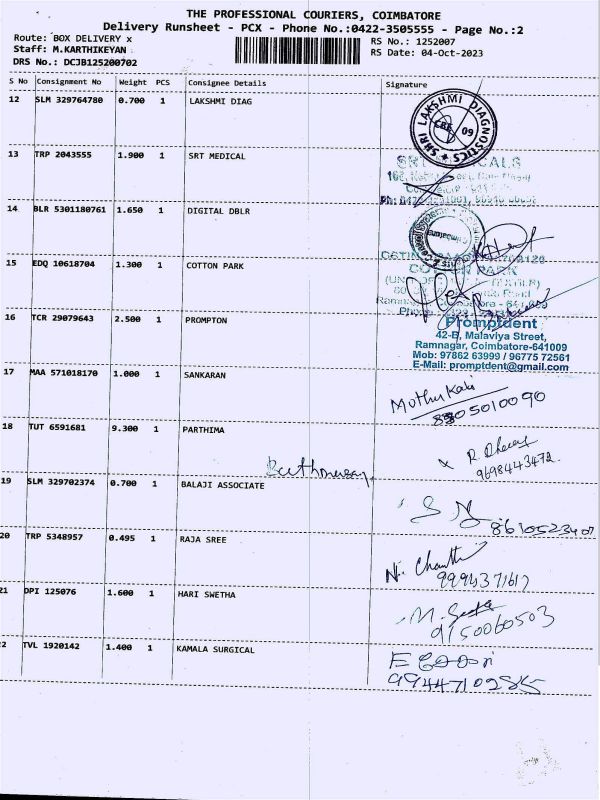 THE PROFESSIONAL COURIERS, COIMBATORE
Delivery Runsheet - PCX - Phone No.:0422-3505555 - Page No.:2
Route: BOX DELIVERY x
RS No.: 1252007
Staff: M.KARTHIKEYAN
RS Date: 04-Oct-2023
DRS No.: DCJB125200702
S No Consignment No Weight PCS Consignee Details Signature
12 SLM 329764780 0.700 1 LAKSHMI DIAG
SHRI LAKSHMI DIAGNOSTICS
CBE 09
13 TRP 2043555 1.900 1 SRT MEDICAL
14 BLR 5301180761 1.650 1 DIGITAL DBLR
Coimbatore
15 EDQ 10618704 1.300 1 COTTON PARK
16 TCR 29079643 2.500 1 PROMPTON
Promptdent
42-B, Malaviya Street,
Ramnagar, Coimbatore-641009
Mob: 97862 63999 / 96775 72561
E-Mail: promptdent@gmail.com
17 MAA 571018170 1.000 1 SANKARAN
18 TUT 6591681 9.300 1 PARTHIMA
9698443472
19 SLM 329702374 0.700 1 BALAJI ASSOCIATE
20 TRP 5348957 0.495 1 RAJA SREE
21 DPI 125076 1.600 1 HARI SWETHA
9150060503
TVL 1920142 1.400 1 KAMALA SURGICAL